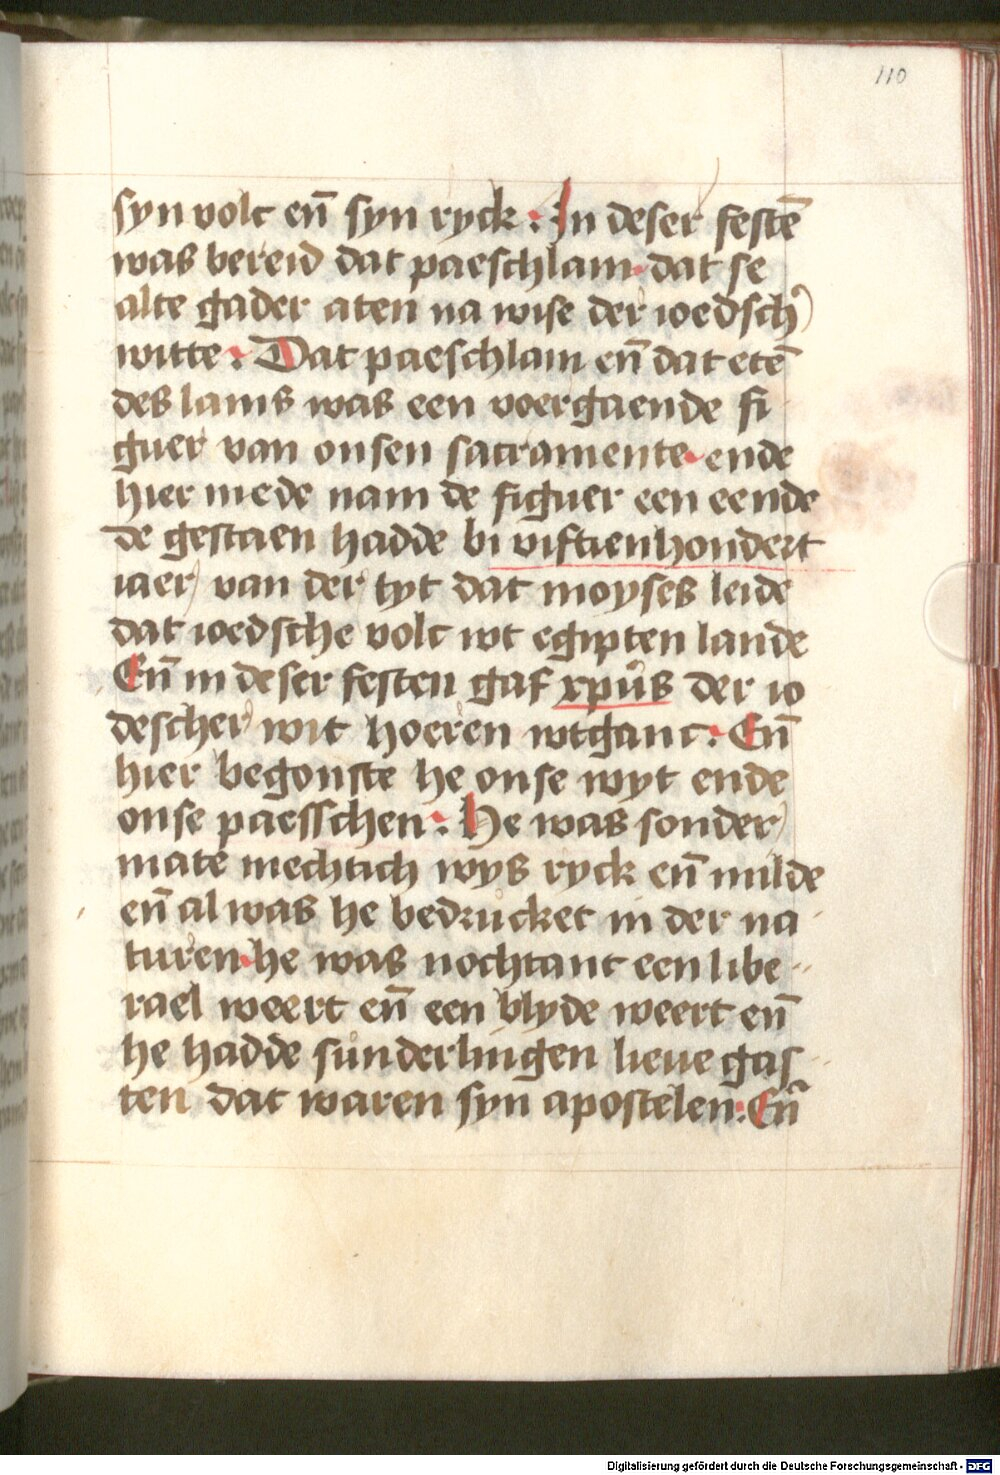 110
syn volc en̄ syn ryck : In deser festē
was bereid dat paeschlam · dat se
alte gader aten na wise der ioedsch'
witte : Dat paeschlam en̄ dat etē
des lams was een voergaende fi
guer van onsen sacramente · ende
hier mede nam de figuer een eende
de gestaen hadde bi viftienhondert
iaer van der tyt dat moyses leide
dat ioedsche volc wt egipten lande
En̄ in deser festen gaf xpūs der io
descher wit hoeren wtganc : En̄
hier begonste he onse wyt ende
onse paesschen : He was sonder
mate mechtich wys ryck en̄ milde
en̄ al was he bedrucket in der na
turen · he was nochtant een libe-
rael weert en̄ een blyde weert en̄
he hadde sunderlingen lieue gas
ten dat waren syn apostelen : En̄
Digitalisierung gefördert durch die Deutsche Forschungsgemeinschaft - DFG